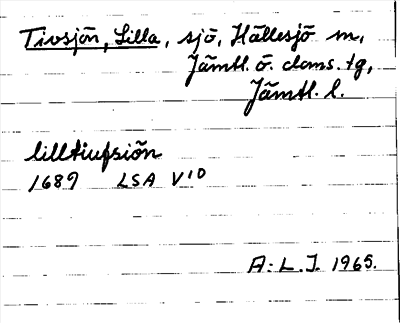 Tivsjön, Lilla, sjö, Hällesjö sn,
Jämtl. ö. doms. tg,
Jämtl. l.
lilltiufsiön
1689 LSA V10
A. L. J. 1965.